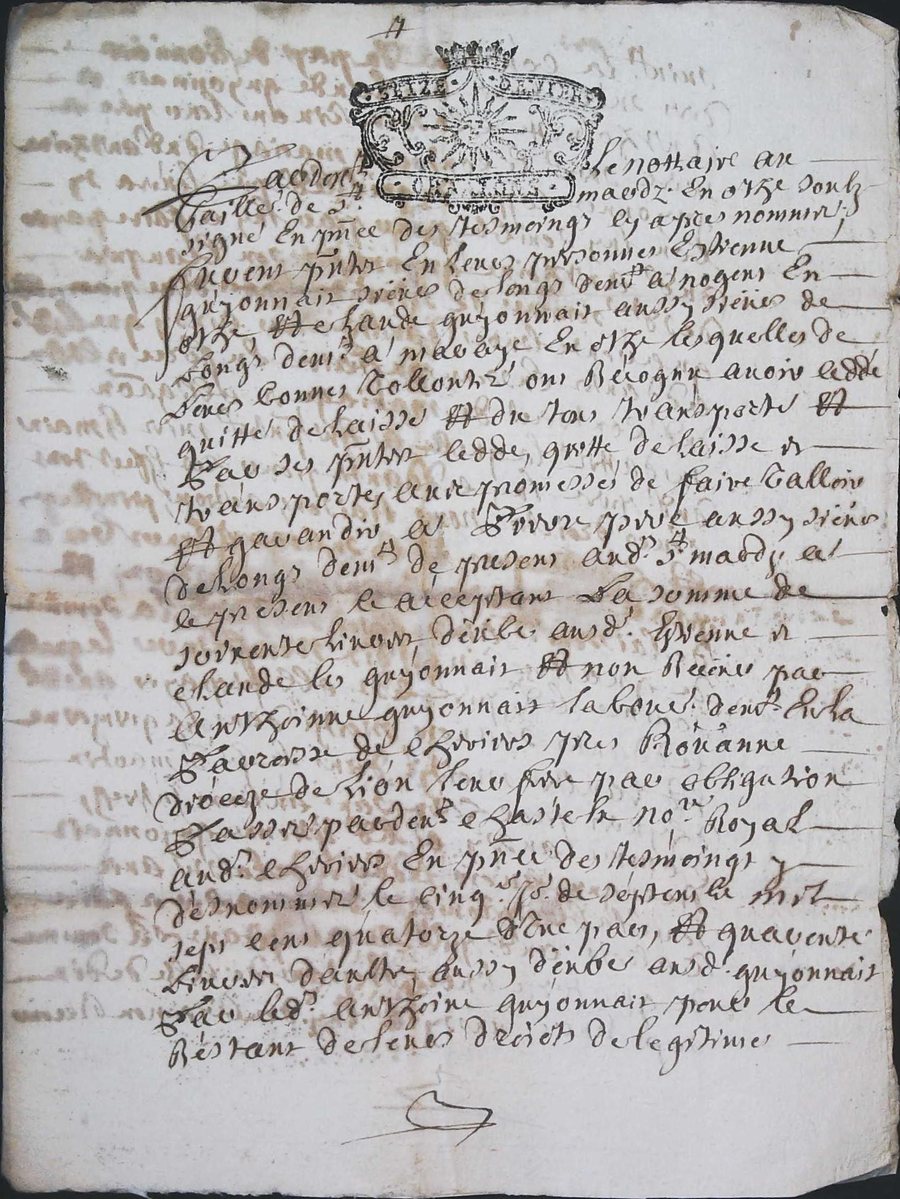 SEIZE DENIERS
ORLEANS
Pardevant le nottaire au
bailles de St mardz En othe soubz
signé En pnce des tesmoings cy apres nommes
furent pnter En leurs personnes Estienne
guyonnait sieurs de longs demt a nogent En
othe, Et claude guyonnait aussy sieurs de
longs demt a maraye En othe lesquelles de
leurs bonnes vollontez ont Recognu avoir cedde
quitté delaissé Et du tout transporté Et
Par ses pnter cedde, quitte delaisse et
transportes avec promesses de faire valloir
Et garandir, a Pierre aussy sieurs
de longs demt de present aud. St mardz a
le present le acceptant La somme de
soixente Livres, deube ausd. Etienne et
claude les guyonnait Et non Receue par
anthoinne guyonnait labour. demt En la
Parroisse de cherier pres Roüanne
dioceze de Lion leur frere par obligation
Passée pardevt chastelu nore Royal
aud. cherier En pnce des tesmoings y
desnommé le cinqe Jo. de septembre mil
sept cens quatorze d'Une part, Et quarente
Livres d'aultre aussy deube ausd. guyonnait
Par led. anthoine guyonnait pour le
Restant de leurs droicts de legitimes